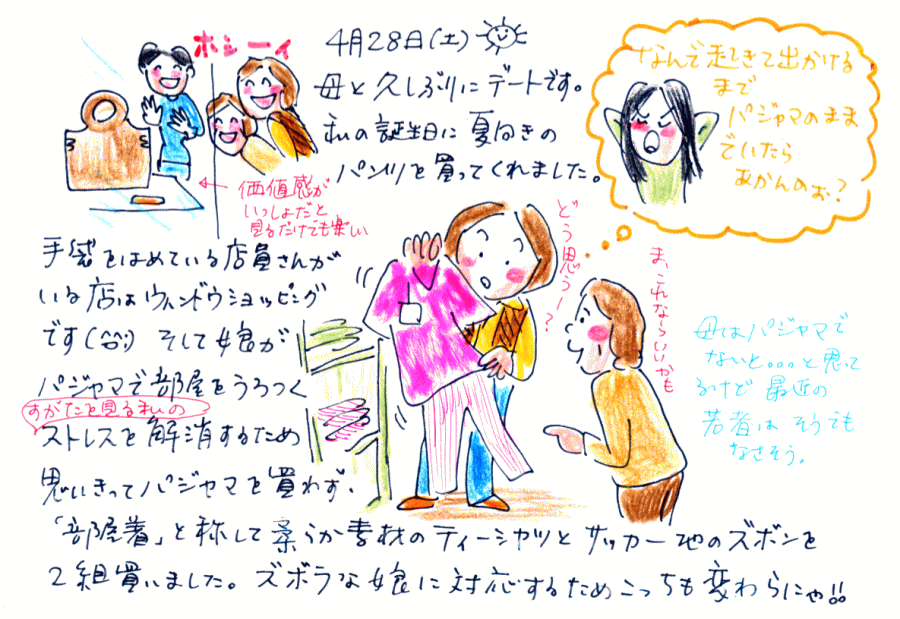 ホシーイ
4月28日(土)
母と久しぶりにデートです。
私の誕生日に夏向きの
パンツを買ってくれました。
価値感が
いっしょだと
見るだけでも楽しい
なんで起きて出かける
まで
パジャマのまま
でいたら
あかんのぉ?
手袋をはめている店員さんが
いる店はウィンドウショッピング
です(^^;) そして娘が
パジャマで部屋をうろつく
すがたを見るまいの
ストレスを解消するため
思いきってパジャマを買わず、
「部屋着」と称して柔らか素材のティーシャツとサッカー地のズボンを
2組買いました。ズボラな娘に対応するためこっちも変わらにゃ!!
どう思うー?
まっこれならいいかも
母はパジャマで
ないと。。。と思って
るけど最近の
若者はそうでも
なさそう。